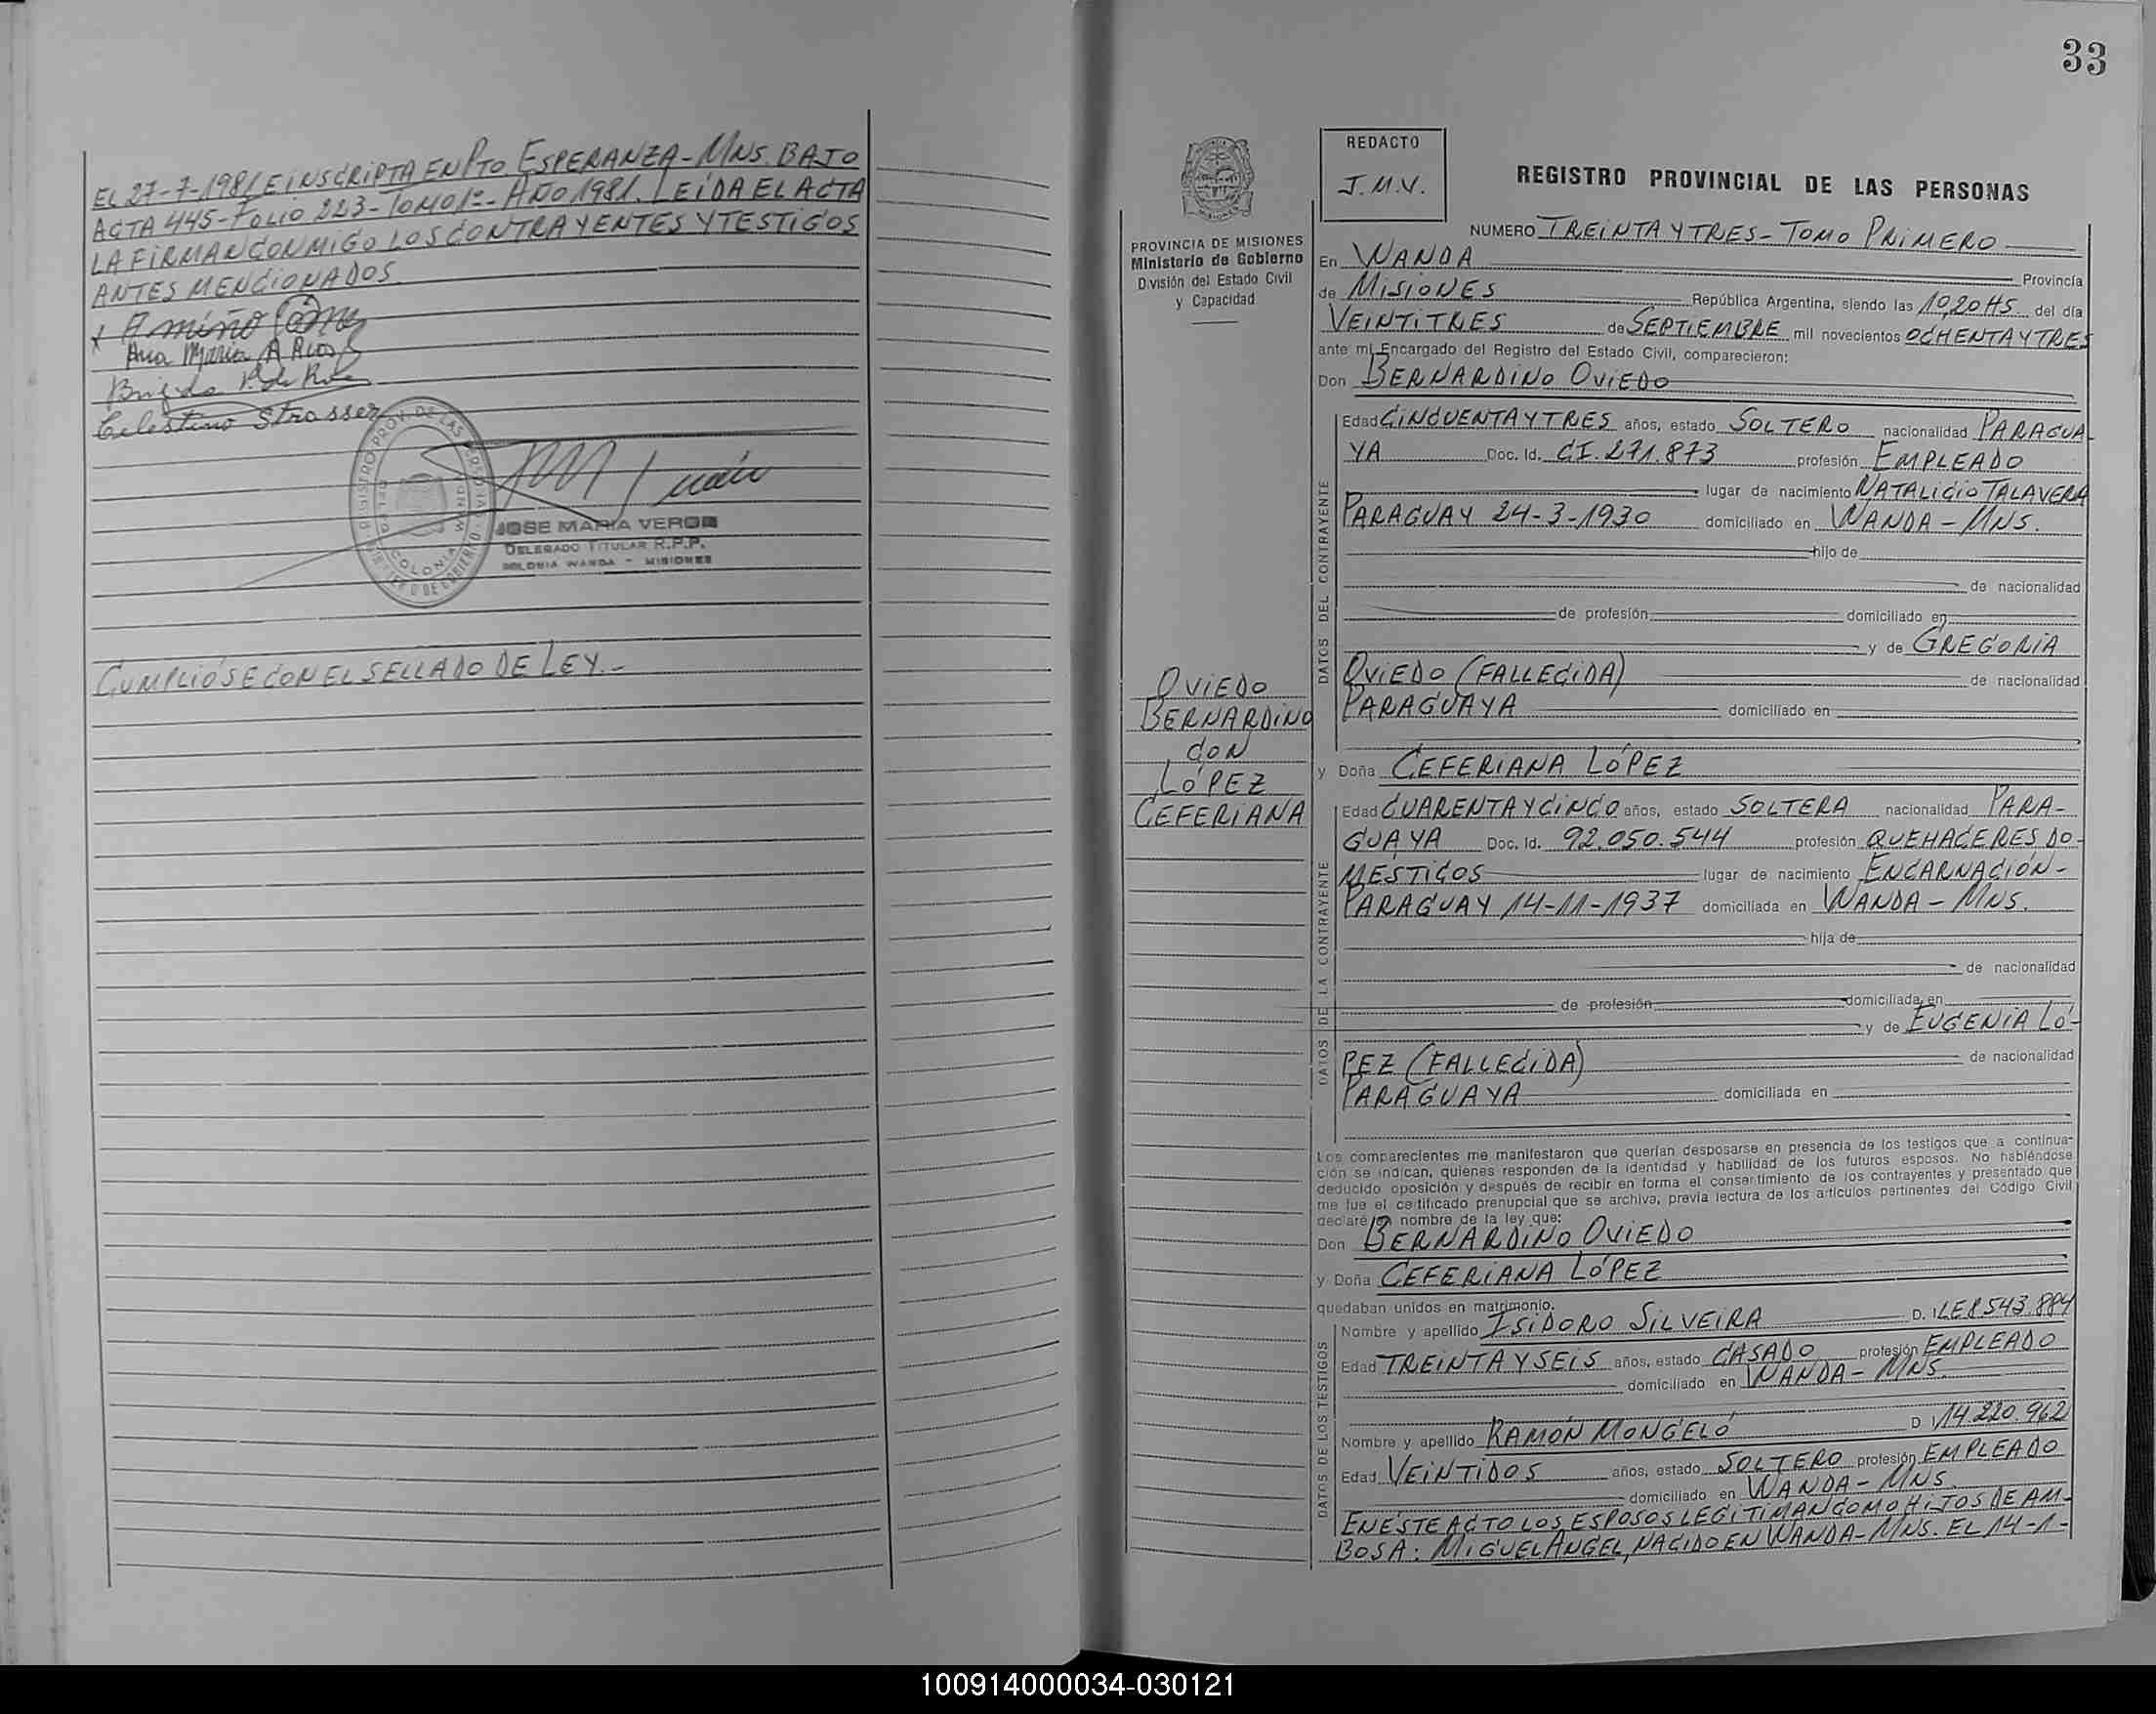 EL 27-7-1981 E INSCRIPTA EN PTO ESPERANZA-MNS. BAJO
ACTA 445-FOLIO 223-TOMO 1º-AÑO 1981. LEÍDA EL ACTA
LA FIRMAN CONMIGO LOS CONTRAYENTES Y TESTIGOS
ANTES MENCIONADOS.
Ana Maria A Rios
Celestino Strosser
JOSE MARIA VERON
DELEGADO TITULAR R.P.P.
COLONIA WANDA - MISIONES
CUMPLIÓSE CON EL SELLADO DE LEY.-
33
PROVINCIA DE MISIONES
Ministerio de Gobierno
División del Estado Civil
y Capacidad
OVIEDO
BERNARDINO
CON
LÓPEZ
CEFERIANA
REDACTO
J.M.V.
REGISTRO PROVINCIAL DE LAS PERSONAS
NUMERO TREINTA Y TRES-TOMO PRIMERO
En WANDA Provincia
de MISIONES República Argentina, siendo las 10,20 HS del día
VEINTITRES de SEPTIEMBRE mil novecientos OCHENTA Y TRES
ante mí Encargado del Registro del Estado Civil, comparecieron:
Don BERNARDINO OVIEDO
DATOS DEL CONTRAYENTE
Edad CINCUENTA Y TRES años, estado SOLTERO nacionalidad PARAGUA-
YA Doc. Id. CI. 271.873 profesión EMPLEADO
lugar de nacimiento NATALICIO TALAVERA
PARAGUAY 24-3-1930 domiciliado en WANDA-MNS.
hijo de
de nacionalidad
de profesión domiciliado en
y de GREGORIA
OVIEDO (FALLECIDA) de nacionalidad
PARAGUAYA domiciliado en
y Doña CEFERIANA LÓPEZ
DATOS DE LA CONTRAYENTE
Edad CUARENTA Y CINCO años, estado SOLTERA nacionalidad PARA-
GUAYA Doc. Id. 92.050.544 profesión QUEHACERES DO-
MESTICOS lugar de nacimiento ENCARNACIÓN-
PARAGUAY 14-11-1937 domiciliada en WANDA-MNS.
hija de
de nacionalidad
de profesión domiciliada en
y de EUGENIA LÓ-
PEZ (FALLECIDA) de nacionalidad
PARAGUAYA domiciliada en
Los comparecientes me manifestaron que querían desposarse en presencia de los testigos que a continua-
ción se indican, quienes responden de la identidad y habilidad de los futuros esposos. No habiéndose
deducido oposición y después de recibir en forma el consentimiento de los contrayentes y presentado que
me fue el certificado prenupcial que se archiva, previa lectura de los artículos pertinentes del Código Civil
declaré en nombre de la ley que:
Don BERNARDINO OVIEDO
y Doña CEFERIANA LÓPEZ
quedaban unidos en matrimonio.
DATOS DE LOS TESTIGOS
Nombre y apellido ISIDORO SILVEIRA D. I LE 8543.884
Edad TREINTA Y SEIS años, estado CASADO profesión EMPLEADO
domiciliado en WANDA-MNS.
Nombre y apellido RAMÓN MONGELÓ D I 14.220.962
Edad VEINTIDOS años, estado SOLTERO profesión EMPLEADO
domiciliado en WANDA-MNS.
EN ESTE ACTO LOS ESPOSOS LEGITIMAN COMO HIJOS DE AM-
BOS A: MIGUEL ANGEL, NACIDO EN WANDA-MNS. EL 14-1-
100914000034-030121